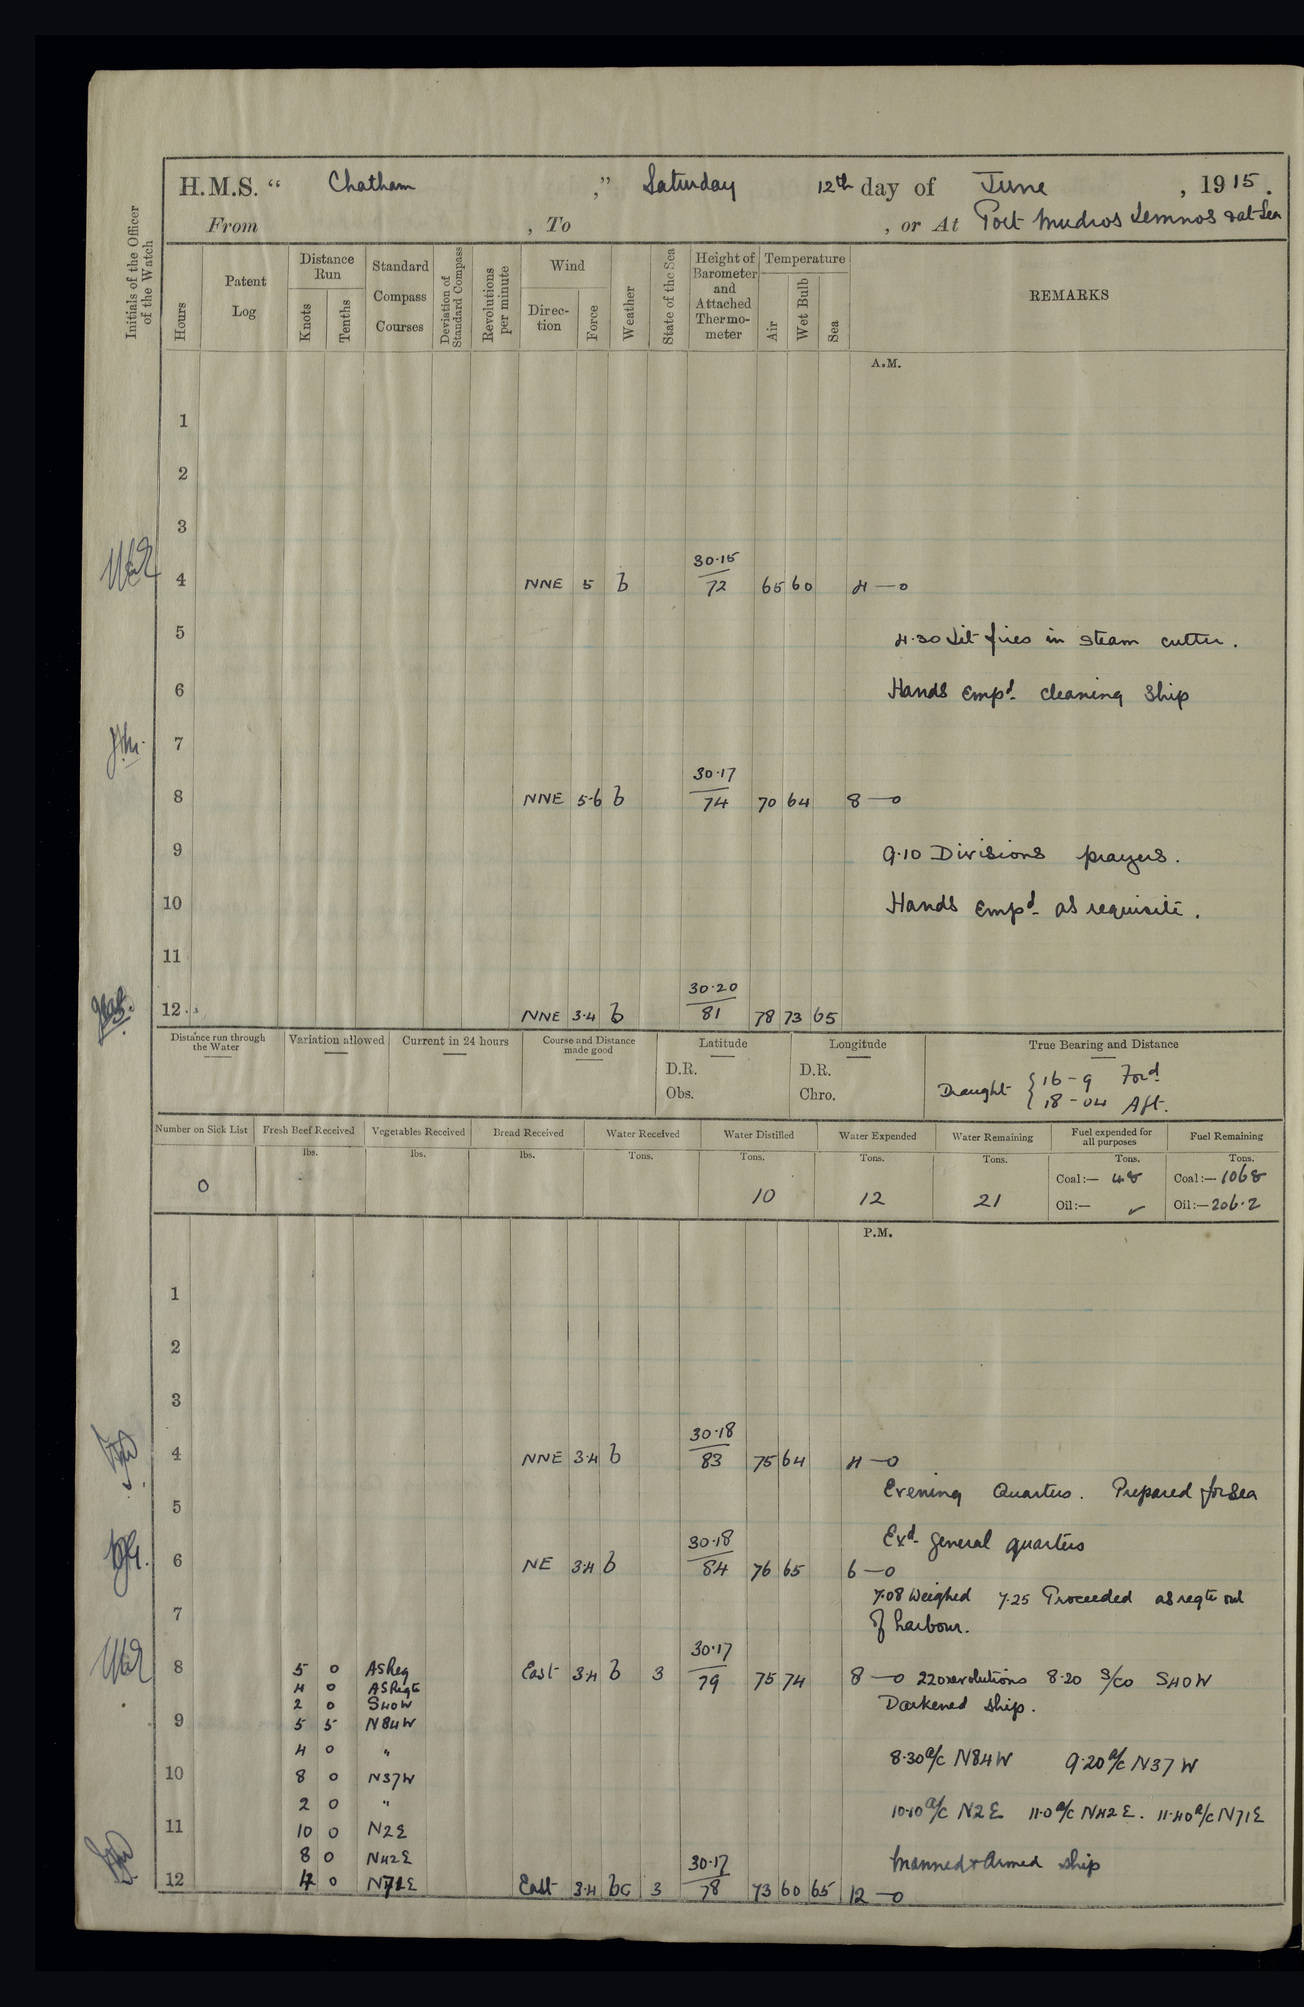 H.M.S. “ Chatham ,” Saturday 12th day of June , 1915.
From , To , or At Port Mudros Lemnos & at Sea
Initials of the Officer of the Watch
Hours
Patent Log
Distance Run
Knots
Tenths
Standard Compass Courses
Deviation of Standard Compass
Revolutions per minute
Wind
Direc-tion
Force
Weather
State of the Sea
Height of Barometer and Attached Thermo-meter
Temperature
Air
Wet Bulb
Sea
REMARKS
A.M.
1
2
3
30·15
4 NNE 5 b 72 65 60 4 —0
5 4·30 Lit fires in steam cutter.
6 Hands Empd. cleaning ship
7
30·17
8 NNE 5·6 b 74 70 64 8 —0
9 9·10 Divisions prayers.
10 Hands Empd. as requisite.
11
30·20
12 NNE 3·4 b 81 78 73 65
Distance run through the Water
Variation allowed
Current in 24 hours
Course and Distance made good
Latitude
D.R.
Obs.
Longitude
D.R.
Chro.
True Bearing and Distance
Draught { 16 - 9 Ford.
18 - 04 Aft.
Number on Sick List
0
Fresh Beef Received
lbs.
Vegetables Received
lbs.
Bread Received
lbs.
Water Received
Tons.
Water Distilled
Tons.
10
Water Expended
Tons.
12
Water Remaining
Tons.
21
Fuel expended for all purposes
Tons.
Coal:— 48
Oil:— ✓
Fuel Remaining
Tons.
Coal:— 1068
Oil:— 206·2
P.M.
1
2
3
30·18
4 NNE 3·4 b 83 75 64 4 —0
Evening Quarters. Prepared for Sea
5
30·18 Exd. general quarters
6 NE 3·4 b 84 76 65 6 —0
7·08 Weighed 7·25 Proceeded as reqte out
7 of harbour.
30·17
8 5 0 AS Req East 3·4 b 3 79 75 74 8 —0 220 revolutions 8·20 S/Co S40W
4 0 AS Reqte
2 0 S40W Darkened ship.
9 5 5 N84W
4 0 " 8·30 a/c N84W 9·20 a/c N37W
10 8 0 N37W
2 0 " 10·10 a/c N2E 11·0 a/c N42E. 11·40 a/c N71E
11 10 0 N2E
8 0 N42E 30·17 Manned & Armed ship
12 4 0 N71E East 3·4 bc 3 78 73 60 65 12 —0